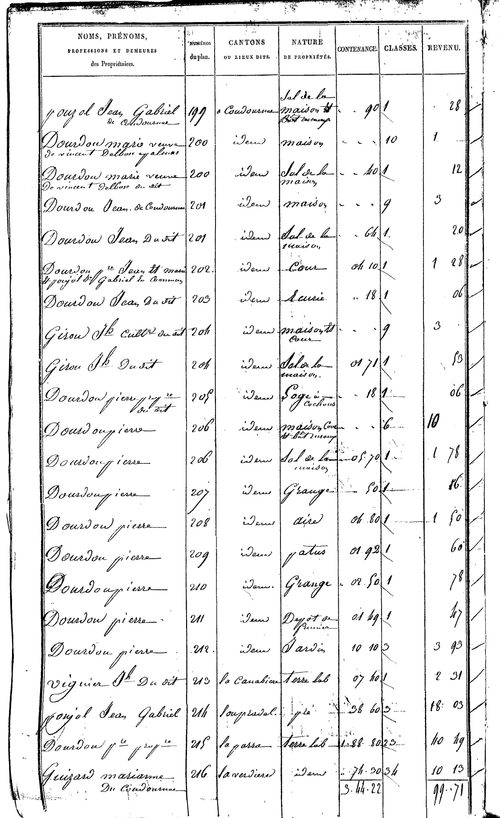 NOMS, PRÉNOMS, PROFESSIONS ET DEMEURES des Propriétaires. | NUMÉROS du plan. | CANTONS OU LIEUX DITS. | NATURE DE PROPRIÉTÉS. | CONTENANCE. | CLASSES. | REVENU.
poujol Jean Gabriel de Coudournac 199 Coudournac Sol de la maison et bât ruraux 90 1 28
Dourdou marie veuve de vincent Delbos 200 idem maison 10 1
Dourdou marie veuve de vincent Delbos du dit 200 idem Sol de la maison 40 1 12
Dourdou Jean de Coudournac 201 idem maison 9 3
Dourdou Jean Du dit 201 idem Sol de la maison 64 1 20
Dourdou Jean et poujol Gabriel en commun 202 idem Cour 04 10 1 1 28
Dourdou Jean Du dit 203 idem Ecurie 18 1 06
Girou Jh Cultr du dit 204 idem maison et cour 9 3
Girou Jh Du dit 204 idem Sol de la maison 01 71 1 53
Dourdou pierre du dit 205 idem Loge à Cochons 18 1 06
Dourdou pierre 206 idem maison Cour et bât ruraux 6 10
Dourdou pierre 206 idem Sol de la maison 05 70 1 1 78
Dourdou pierre 207 idem Grange 50 1 16
Dourdou pierre 208 idem aire 04 80 1 1 50
Dourdou pierre 209 idem patus 01 92 1 60
Dourdou pierre 210 idem Grange 02 50 1 78
Dourdou pierre 211 idem Depôt de fumier 01 49 1 47
Dourdou pierre 212 idem Jardin 10 10 3 3 93
viguier Jh Du dit 213 la Canabiere terre lab 07 40 1 2 31
poujol Jean Gabriel 214 loupradal pré 38 60 3 18 03
Dourdou 215 la parra terre lab 1 88 80 23 40 49
Guizard marianne Du Coudournac 216 la verdiere idem 74 30 34 10 13
3.44.22 99.71